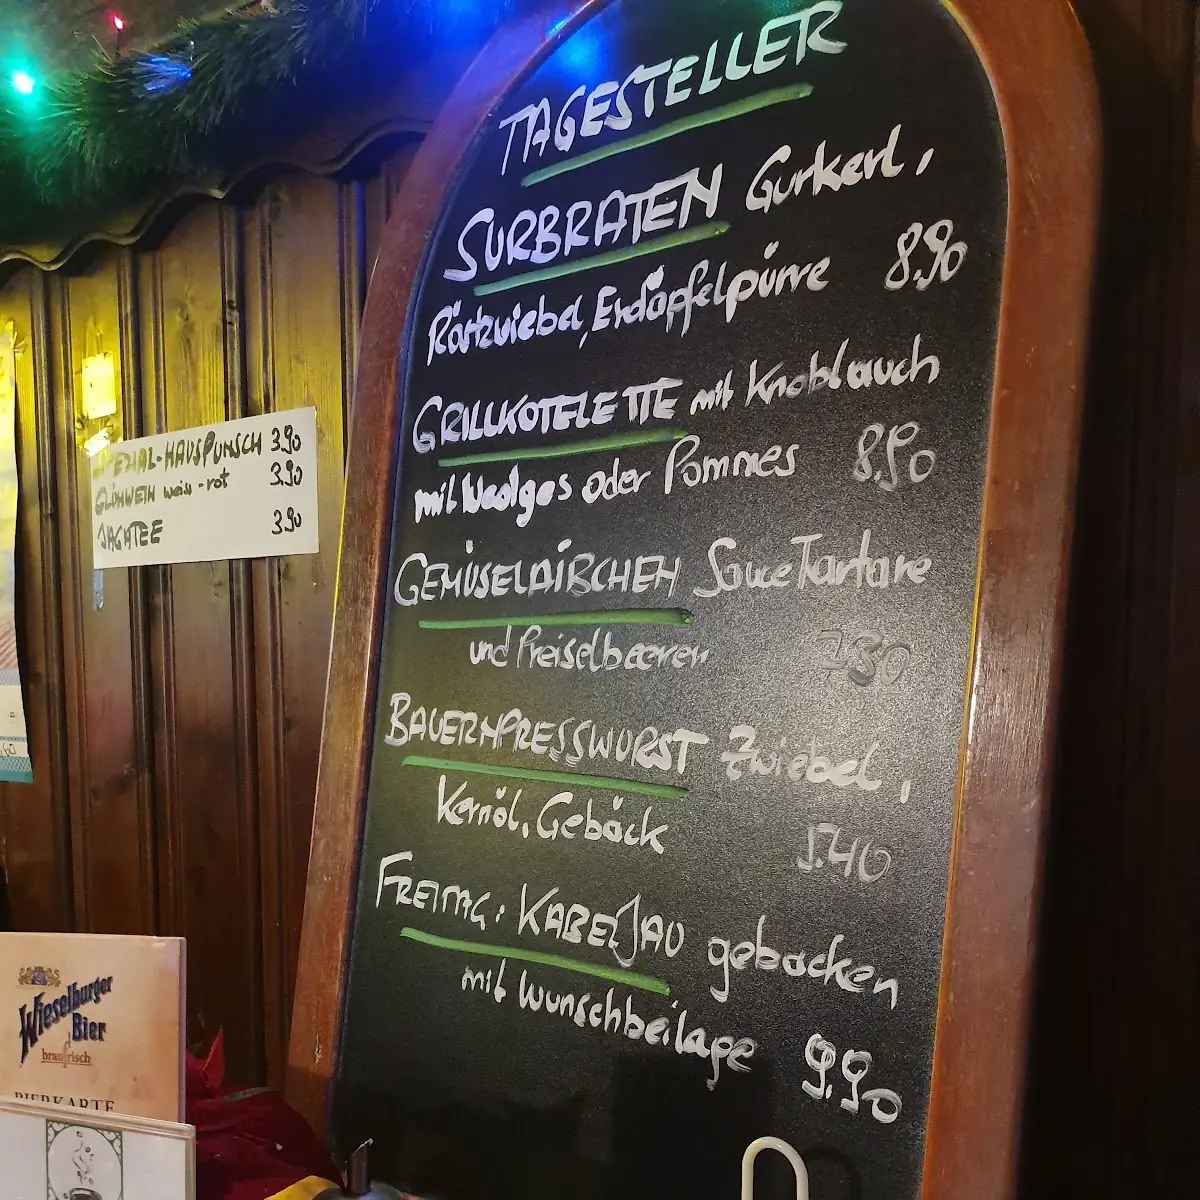 TAGESTELLER
SURBRATEN Gurkerl,
Röstzwiebel, Erdäpfelpürre 8.90
GRILLKOTELETTE mit Knoblauch
mit Wedges oder Pommes 8.90
GEMÜSELAIBCHEN Sauce Tartare
und Preiselbeeren 7.50
BAUERNPRESSWURST Zwiebel,
Kernöl, Gebäck 5.40
FREITAG: KABELJAU gebacken
mit Wunschbeilage 9.90
SPEZIAL-HAUSPUNSCH 3.90
GLÜHWEIN weiss-rot 3.90
JAGATEE 3.90
Wieselburger
Bier
braufrisch
BIERKARTE